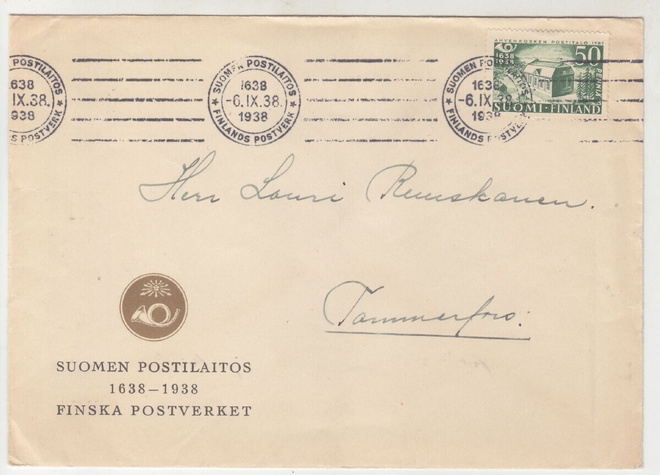 SUOMEN POSTILAITOS
1638
-6.IX.38.
1938
★ FINLANDS POSTVERK ★
SUOMEN POSTILAITOS
1638
-6.IX.38.
1938
★ FINLANDS POSTVERK ★
SUOMEN POSTILAITOS
1638
-6.IX
1938
★ FINLANDS POSTVERK
1638
1938
50
PENNIÄ
SUOMI-FINLAND
Herr Lauri Reuskanen.
Tammerfors.
SUOMEN POSTILAITOS
1638-1938
FINSKA POSTVERKET